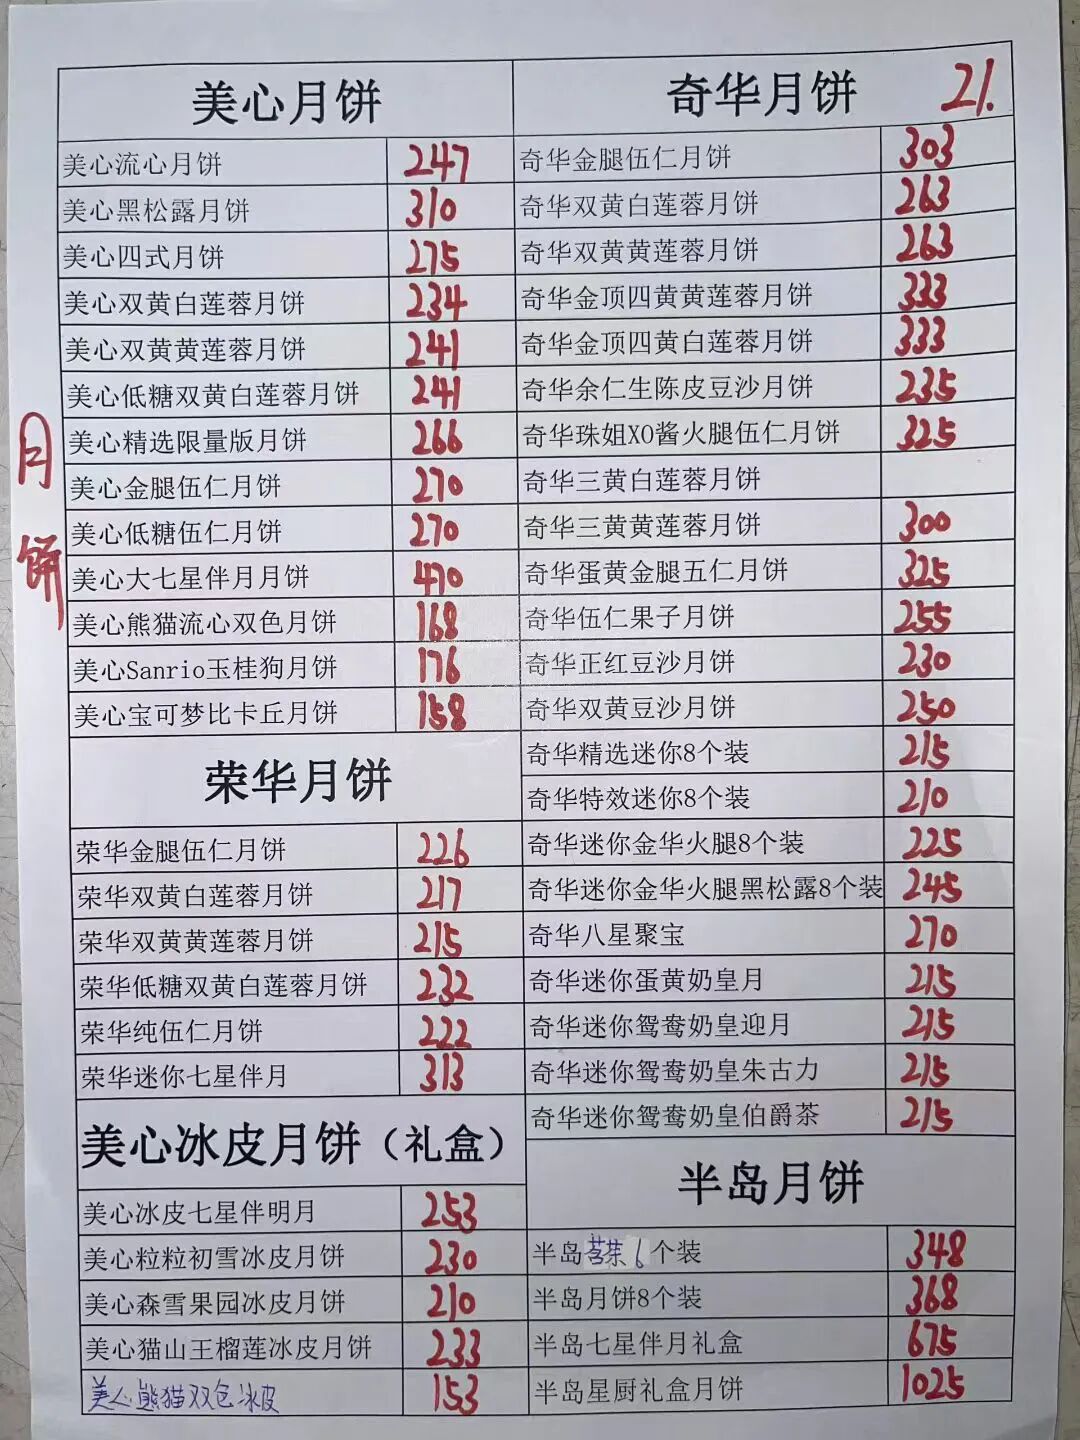 月饼
美心月饼
美心流心月饼 247
美心黑松露月饼 310
美心四式月饼 275
美心双黄白莲蓉月饼 234
美心双黄黄莲蓉月饼 241
美心低糖双黄白莲蓉月饼 241
美心精选限量版月饼 266
美心金腿伍仁月饼 270
美心低糖伍仁月饼 270
美心大七星伴月月饼 470
美心熊猫流心双色月饼 168
美心Sanrio玉桂狗月饼 176
美心宝可梦比卡丘月饼 158
荣华月饼
荣华金腿伍仁月饼 226
荣华双黄白莲蓉月饼 217
荣华双黄黄莲蓉月饼 215
荣华低糖双黄白莲蓉月饼 232
荣华纯伍仁月饼 222
荣华迷你七星伴月 313
美心冰皮月饼（礼盒）
美心冰皮七星伴明月 253
美心粒粒初雪冰皮月饼 230
美心森雪果园冰皮月饼 210
美心猫山王榴莲冰皮月饼 233
美心熊猫双色冰皮 153
奇华月饼 21.
奇华金腿伍仁月饼 303
奇华双黄白莲蓉月饼 263
奇华双黄黄莲蓉月饼 263
奇华金顶四黄黄莲蓉月饼 333
奇华金顶四黄白莲蓉月饼 333
奇华余仁生陈皮豆沙月饼 235
奇华珠姐XO酱火腿伍仁月饼 325
奇华三黄白莲蓉月饼
奇华三黄黄莲蓉月饼 300
奇华蛋黄金腿五仁月饼 325
奇华伍仁果子月饼 255
奇华正红豆沙月饼 230
奇华双黄豆沙月饼 250
奇华精选迷你8个装 215
奇华特效迷你8个装 210
奇华迷你金华火腿8个装 225
奇华迷你金华火腿黑松露8个装 245
奇华八星聚宝 270
奇华迷你蛋黄奶皇月 215
奇华迷你鸳鸯奶皇迎月 215
奇华迷你鸳鸯奶皇朱古力 215
奇华迷你鸳鸯奶皇伯爵茶 215
半岛月饼
半岛 6个装 348
半岛月饼8个装 368
半岛七星伴月礼盒 675
半岛星厨礼盒月饼 1025